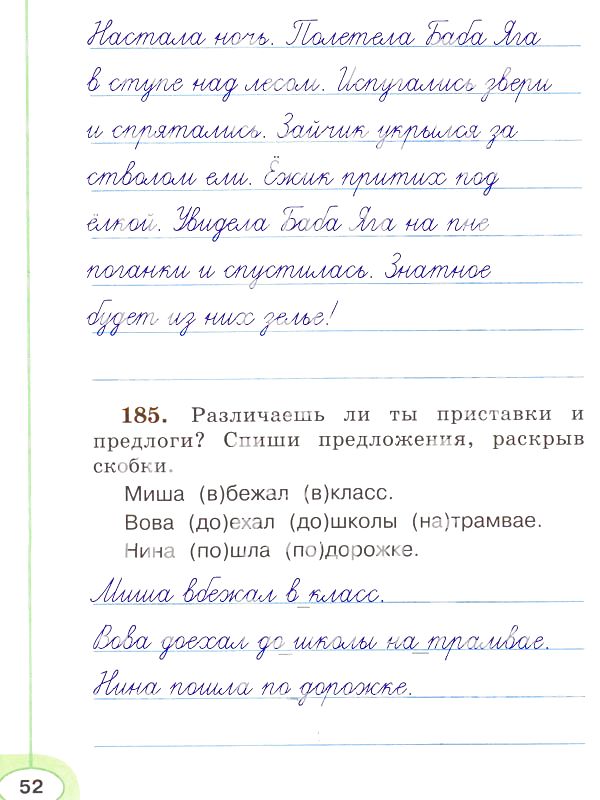 Настала ночь. Полетела Баба Яга
в ступе над лесом. Испугались звери
и спрятались. Зайчик укрылся за
стволом ели. Ёжик притих под
ёлкой. Увидела Баба Яга на пне
поганки и спустилась. Знатное
будет из них зелье!
185. Различаешь ли ты приставки и
предлоги? Спиши предложения, раскрыв
скобки.
Миша (в)бежал (в)класс.
Вова (до)ехал (до)школы (на)трамвае.
Нина (по)шла (по)дорожке.
Миша вбежал в_класс.
Вова доехал до_школы на_трамвае.
Нина пошла по_дорожке.
52